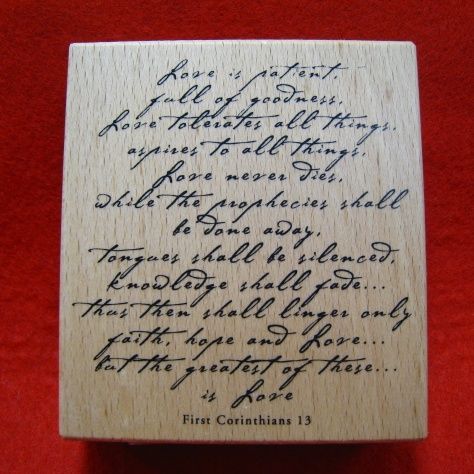 Love is patient,
full of goodness,
Love tolerates all things,
aspires to all things,
Love never dies,
while the prophecies shall
be done away,
tongues shall be silenced,
knowledge shall fade...
thus then shall linger only
faith, hope and Love...
but the greatest of these...
is Love
First Corinthians 13